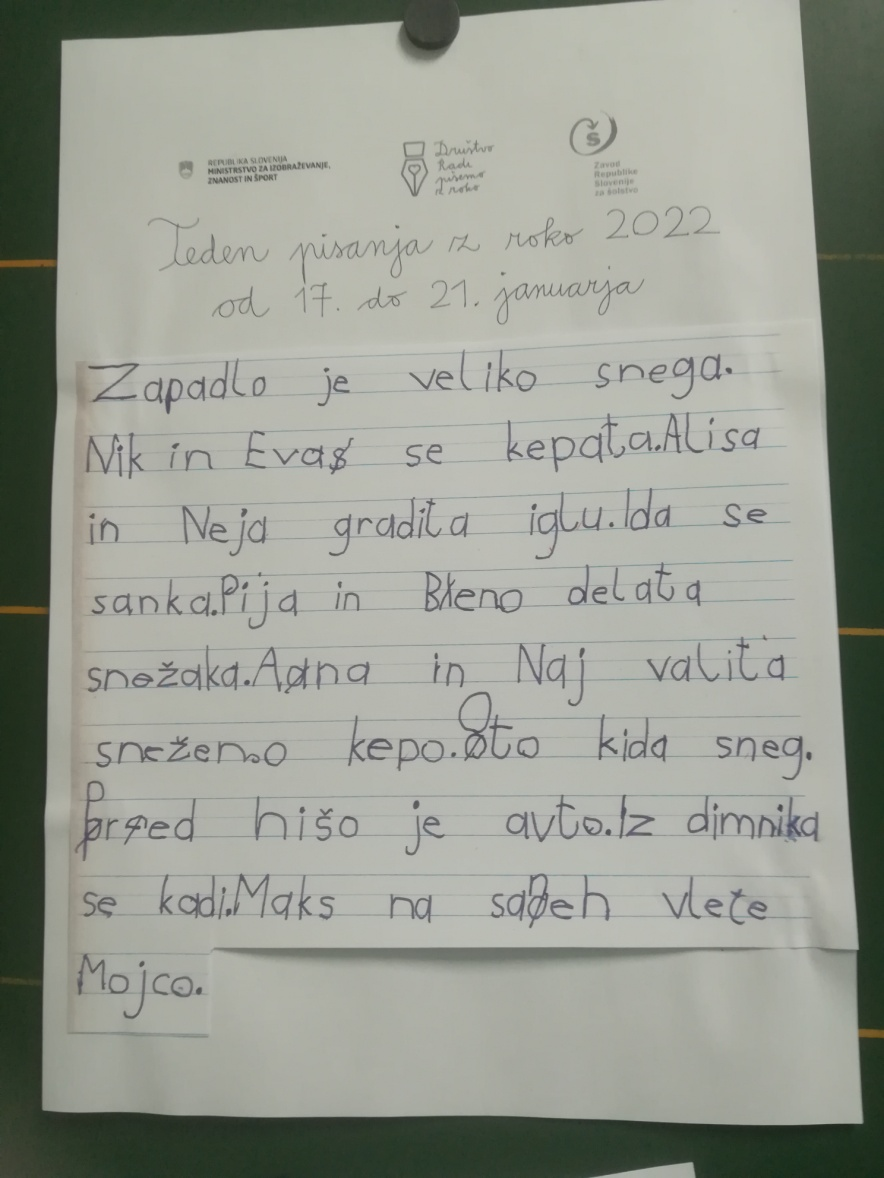 REPUBLIKA SLOVENIJA
MINISTRSTVO ZA IZOBRAŽEVANJE,
ZNANOST IN ŠPORT
Društvo
Radi
pišemo
z roko
Š
Zavod
Republike
Slovenije
za šolstvo
Teden pisanja z roko 2022
od 17. do 21. januarja
Zapadlo je veliko snega.
Nik in Eva se kepata.Alisa
in Neja gradita iglu.Ida se
sanka.Pija in Bteno delata
snežaka.Ana in Naj valita
sneženo kepo.Oto kida sneg.
Pred hišo je avto.Iz dimnika
se kadi.Maks na saneh vleče
Mojco.